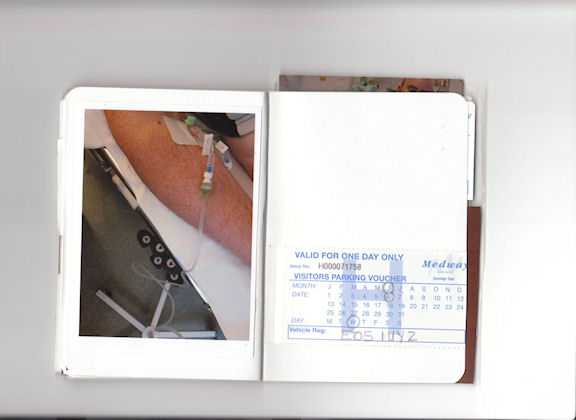 VALID FOR ONE DAY ONLY
Issue No. H000071758 Medway
Serving You
VISITORS PARKING VOUCHER
MONTH: J F M A M J J A S O N D
DATE: 1 2 3 4 5 6 7 8 9 10 11 12
13 14 15 16 17 18 19 20 21 22 23 24
25 26 27 28 29 30 31
DAY: M T W T F S S
Vehicle Reg: